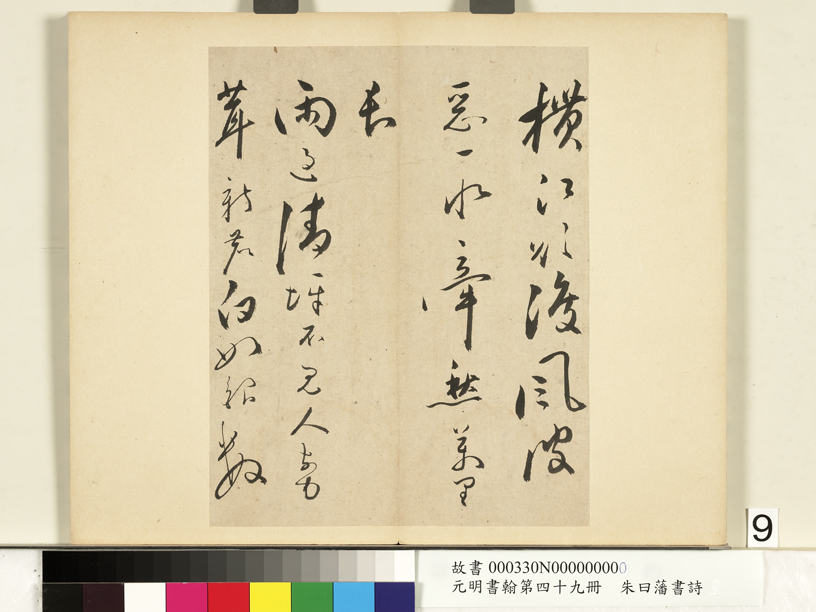 橫江欲渡風波
惡一水牽愁萬里
長
雨過清坪不見人
茸新茗白如銀數
9
故書 000330N000000000
元明書翰第四十九冊　朱曰藩書詩